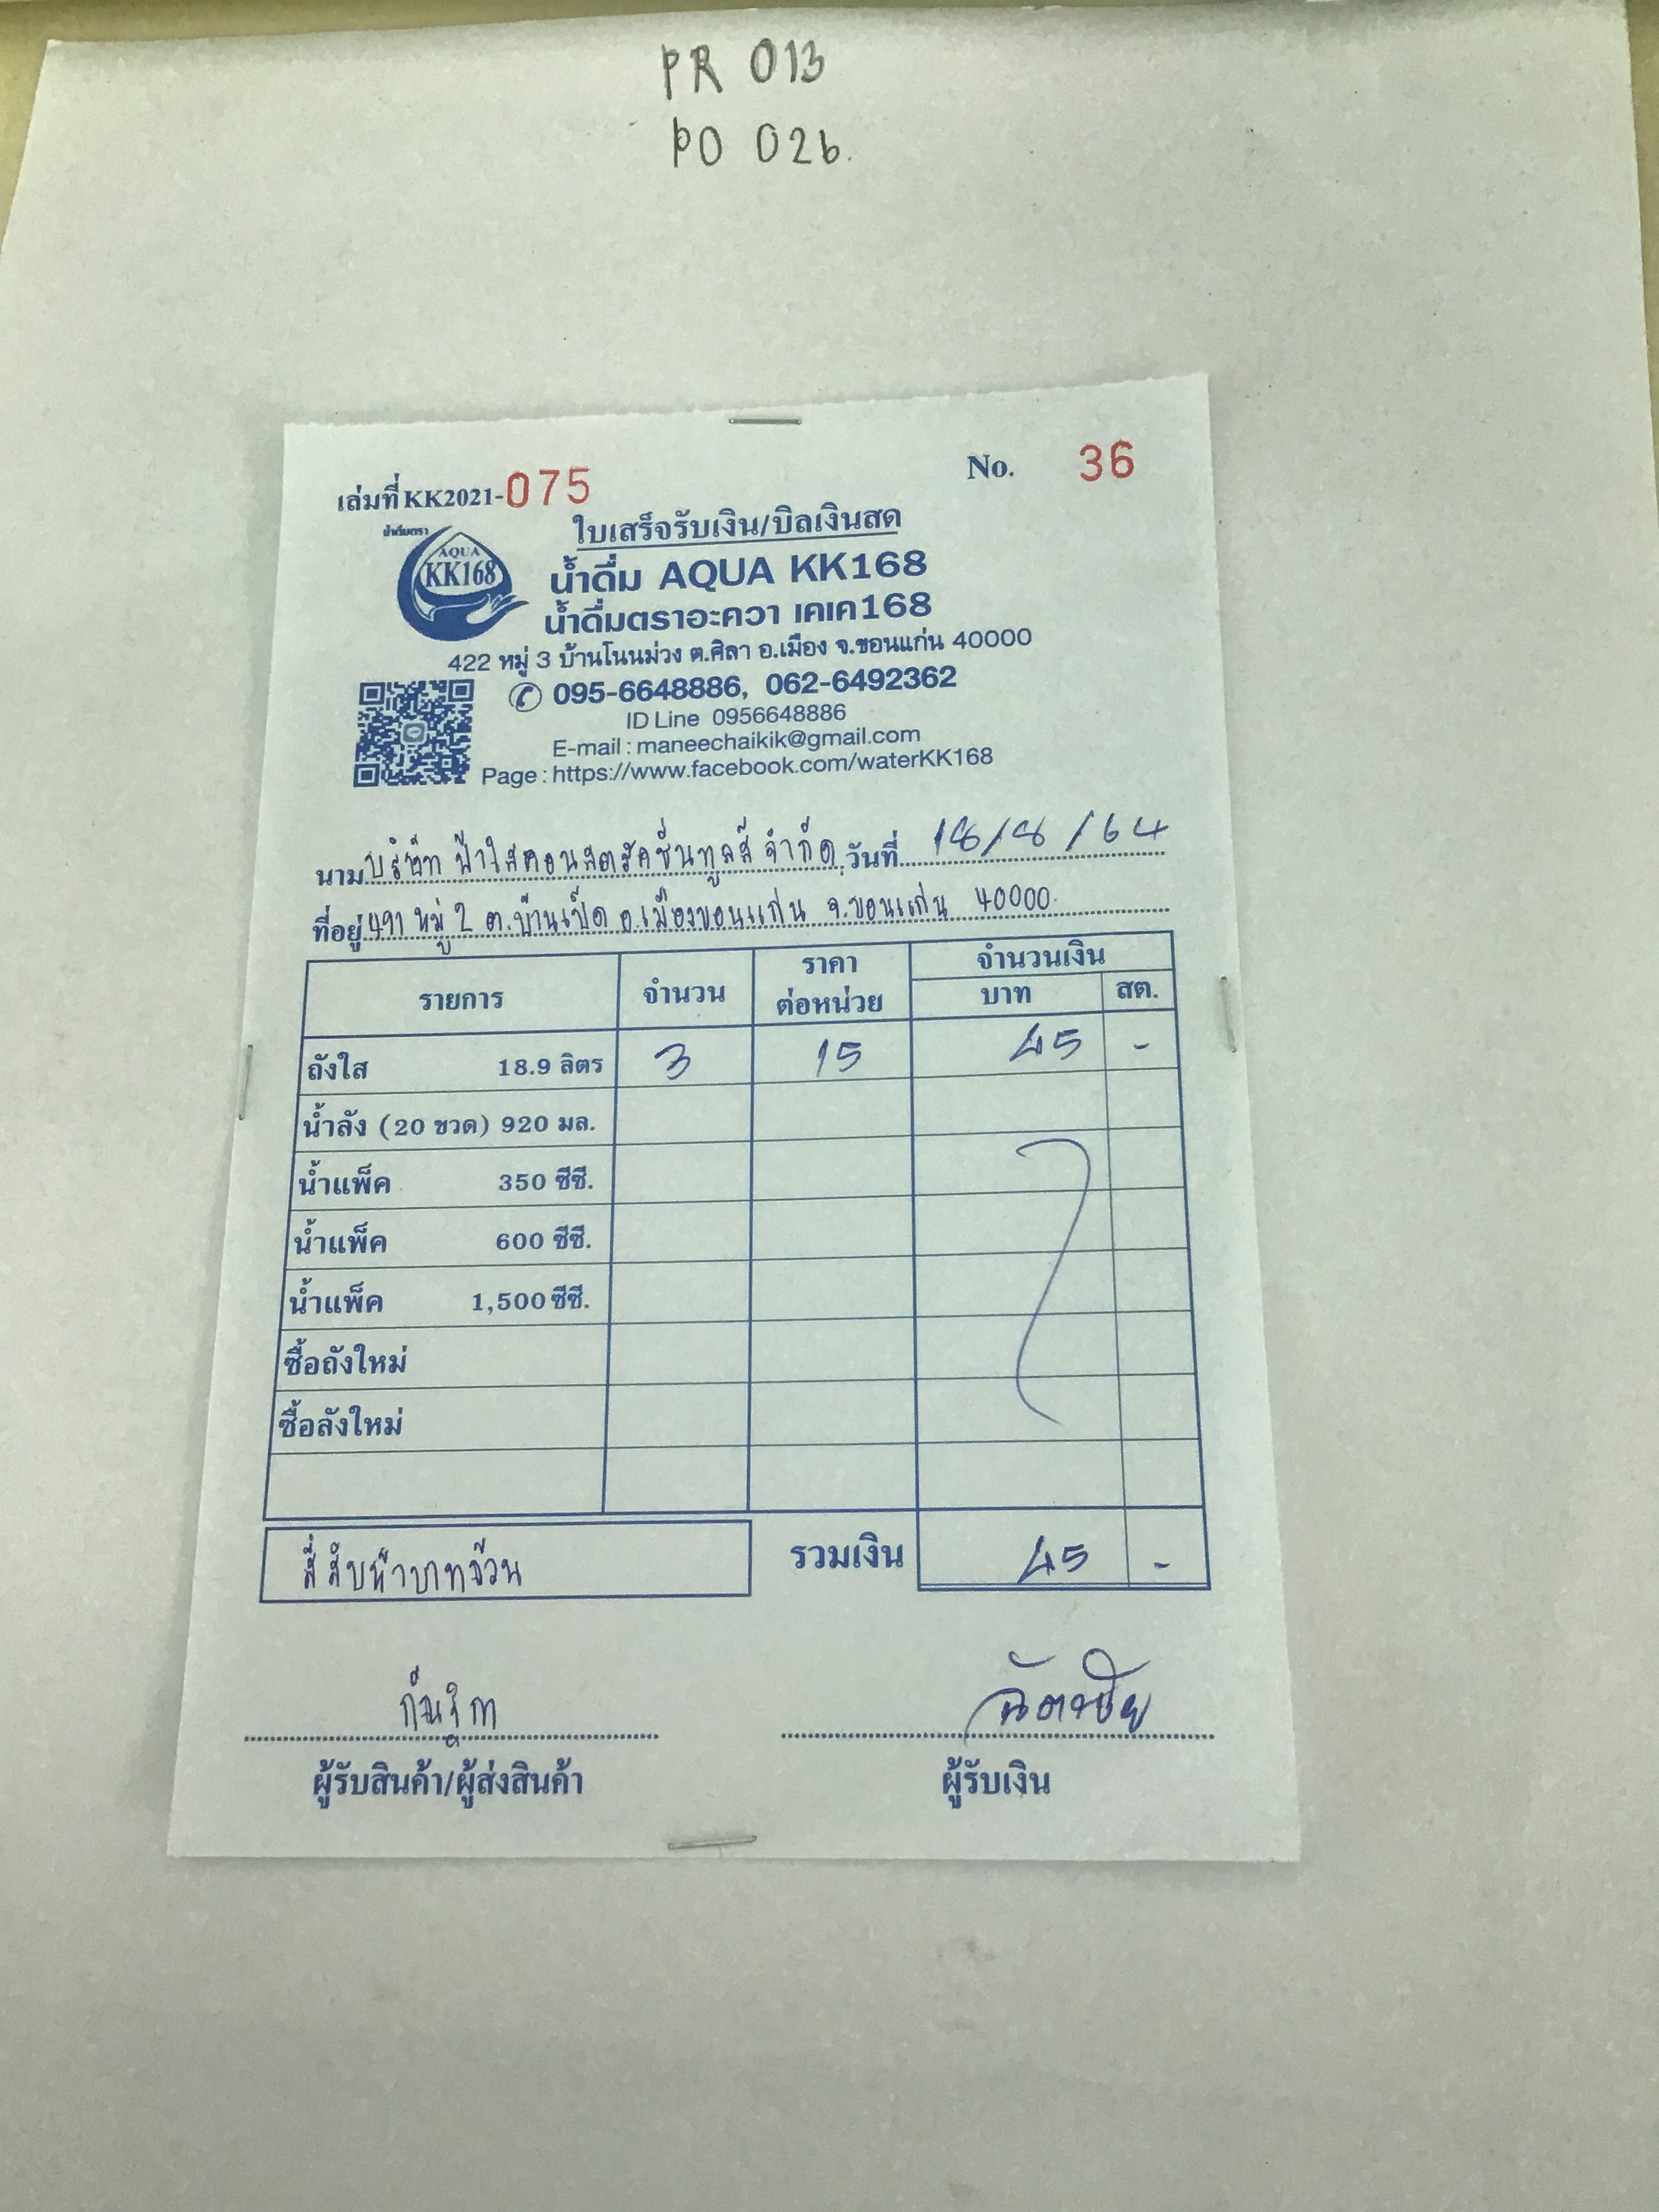 PR 013
PO 026.
เล่มที่ KK2021-075
No. 36
ใบเสร็จรับเงิน/บิลเงินสด
น้ำดื่มตรา
AQUA
KK168
น้ำดื่ม AQUA KK168
น้ำดื่มตราอะควา เคเค168
422 หมู่ 3 บ้านโนนม่วง ต.ศิลา อ.เมือง จ.ขอนแก่น 40000
095-6648886, 062-6492362
ID Line 0956648886
E-mail : maneechaikik@gmail.com
Page : https://www.facebook.com/waterKK168
นาม บริษัท ฟ้าใสคอนสตรัคชั่นทูลส์ จำกัด วันที่ 16/6/64
ที่อยู่ หมู่ 2 ต.บ้านเป็ด อ.เมืองขอนแก่น จ.ขอนแก่น 40000
รายการ จำนวน ราคาต่อหน่วย จำนวนเงิน บาท สต.
ถังใส 18.9 ลิตร 3 15 45 -
น้ำลัง (20 ขวด) 920 มล.
น้ำแพ็ค 350 ซีซี.
น้ำแพ็ค 600 ซีซี.
น้ำแพ็ค 1,500 ซีซี.
ซื้อถังใหม่
ซื้อลังใหม่
สี่สิบห้าบาทถ้วน รวมเงิน 45 -
ผู้รับสินค้า/ผู้ส่งสินค้า ผู้รับเงิน